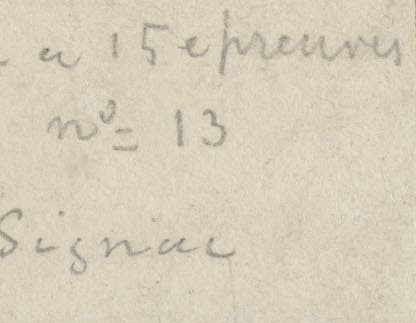 a 15 epreuves
nº= 13
Signac